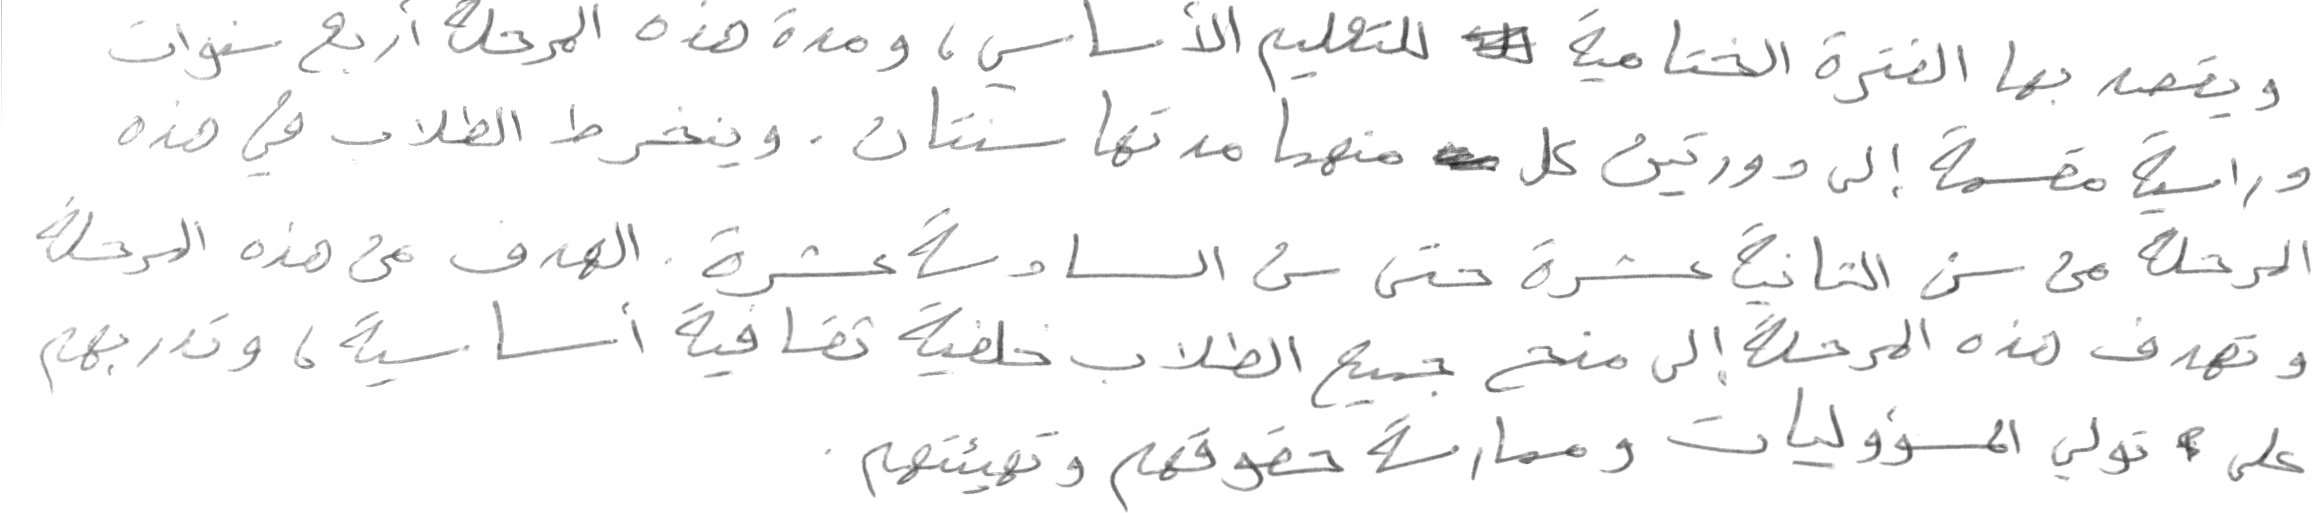 ويقصد بها الفترة الختامية للتعليم الأساسي، ومدة هذه المرحلة أربع سنوات
دراسية مقسمة إلى دورتين كل منهما مدتها سنتان. وينخرط الطلاب في هذه
المرحلة من سن الثانية عشرة حتى سن السادسة عشرة. الهدف من هذه المرحلة
وتهدف هذه المرحلة إلى منح جميع الطلاب خلفية ثقافية أساسية، وتدربهم
على تولي المسؤوليات وممارسة حقوقهم وتهيئتهم.